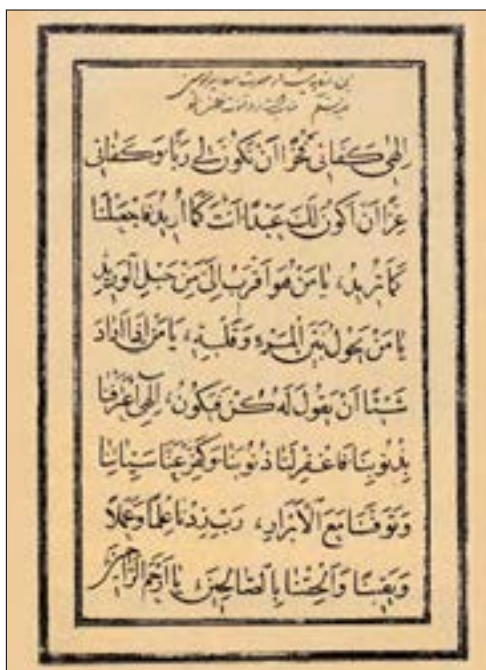 إلهي كَفَانِي فَخْرًا أَنْ تَكُونَ لِي رَبًّا وَكَفَانِي
عِزًّا أَنْ أَكُونَ لَكَ عَبْدًا أَنْتَ كَمَا أُرِيدُ فَاجْعَلْنَا
كَمَا تُرِيدُ، يَا مَنْ هُوَ أَقْرَبُ إِلَيَّ مِنْ حَبْلِ الْوَرِيدِ
يَا مَنْ يَحُولُ بَيْنَ الْمَرْءِ وَقَلْبِهِ، يَا مَنْ إِذَا أَرَادَ
شَيْئًا أَنْ يَقُولَ لَهُ كُنْ فَيَكُونُ، إِلَهِي اعْتَرَفْنَا
بِذُنُوبِنَا فَاغْفِرْ لَنَا ذُنُوبَنَا وَكَفِّرْ عَنَّا سَيِّئَاتِنَا
وَتَوَفَّنَا مَعَ الْأَبْرَارِ، رَبِّ زِدْنَا عِلْمًا وَعَمَلًا
وَيَقِينًا وَأَلْحِقْنَا بِالصَّالِحِينَ يَا أَرْحَمَ الرَّاحِمِينَ